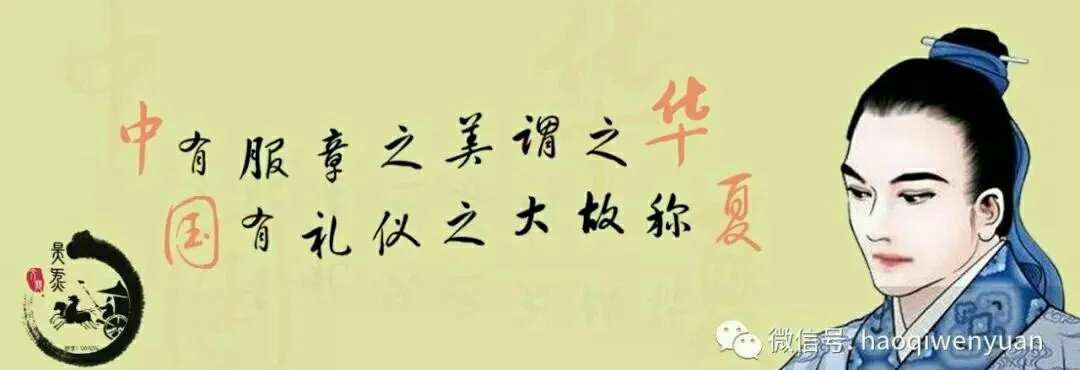 中有服章之美谓之华
国有礼仪之大故称夏
微信号: haoqiwenyuan